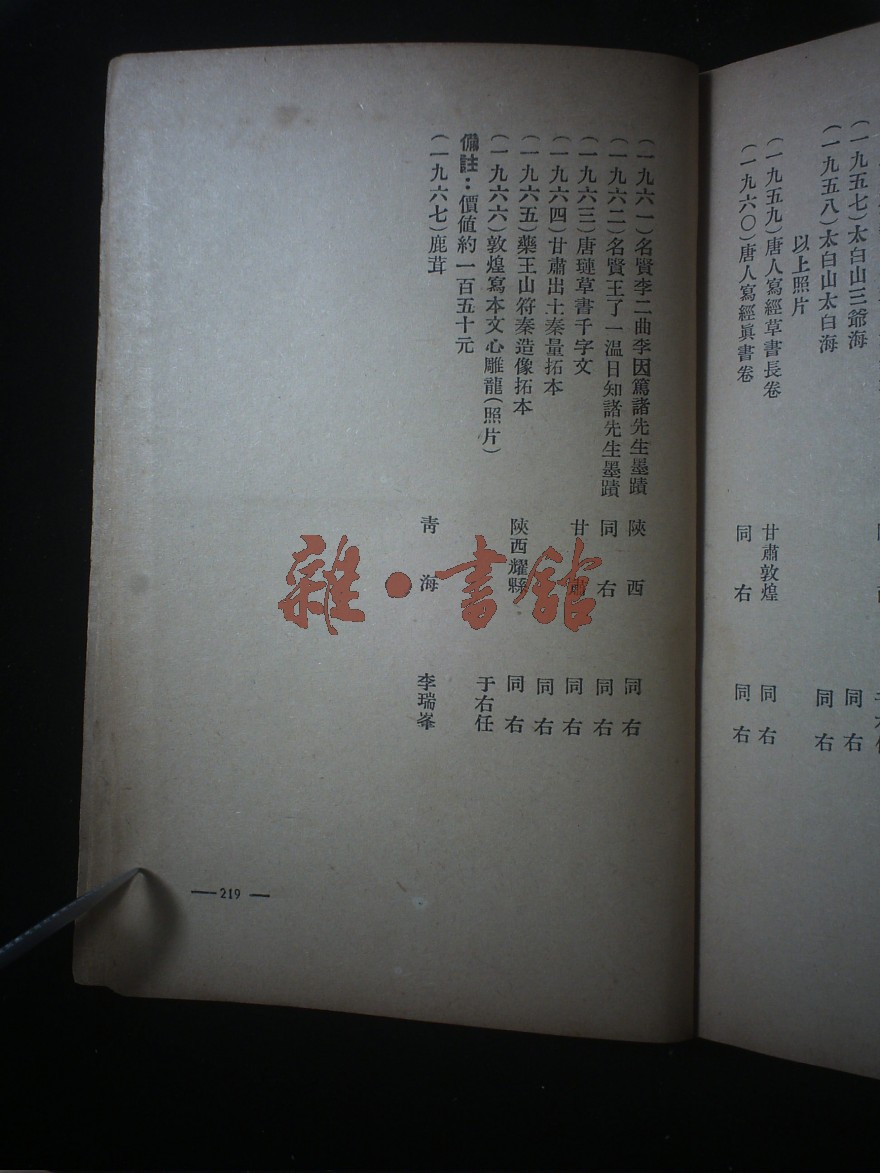 （一九五七）太白山三爺海　同　右
（一九五八）太白山太白海　同　右
以上照片
（一九五九）唐人寫經草書長卷　甘肅敦煌　同　右
（一九六〇）唐人寫經眞書卷　同　右　同　右
（一九六一）名賢李二曲李因篤諸先生墨蹟　陝　西　同　右
（一九六二）名賢王了一温日知諸先生墨蹟　同　右　同　右
（一九六三）唐璉草書千字文　甘　肅　同　右
（一九六四）甘肅出土秦量拓本　同　右
（一九六五）藥王山符秦造像拓本　陝西耀縣　同　右
（一九六六）敦煌寫本文心雕龍（照片）　于右任
備註：價值約一百五十元
（一九六七）鹿茸　青　海　李瑞峯
— 219 —
雜·書館